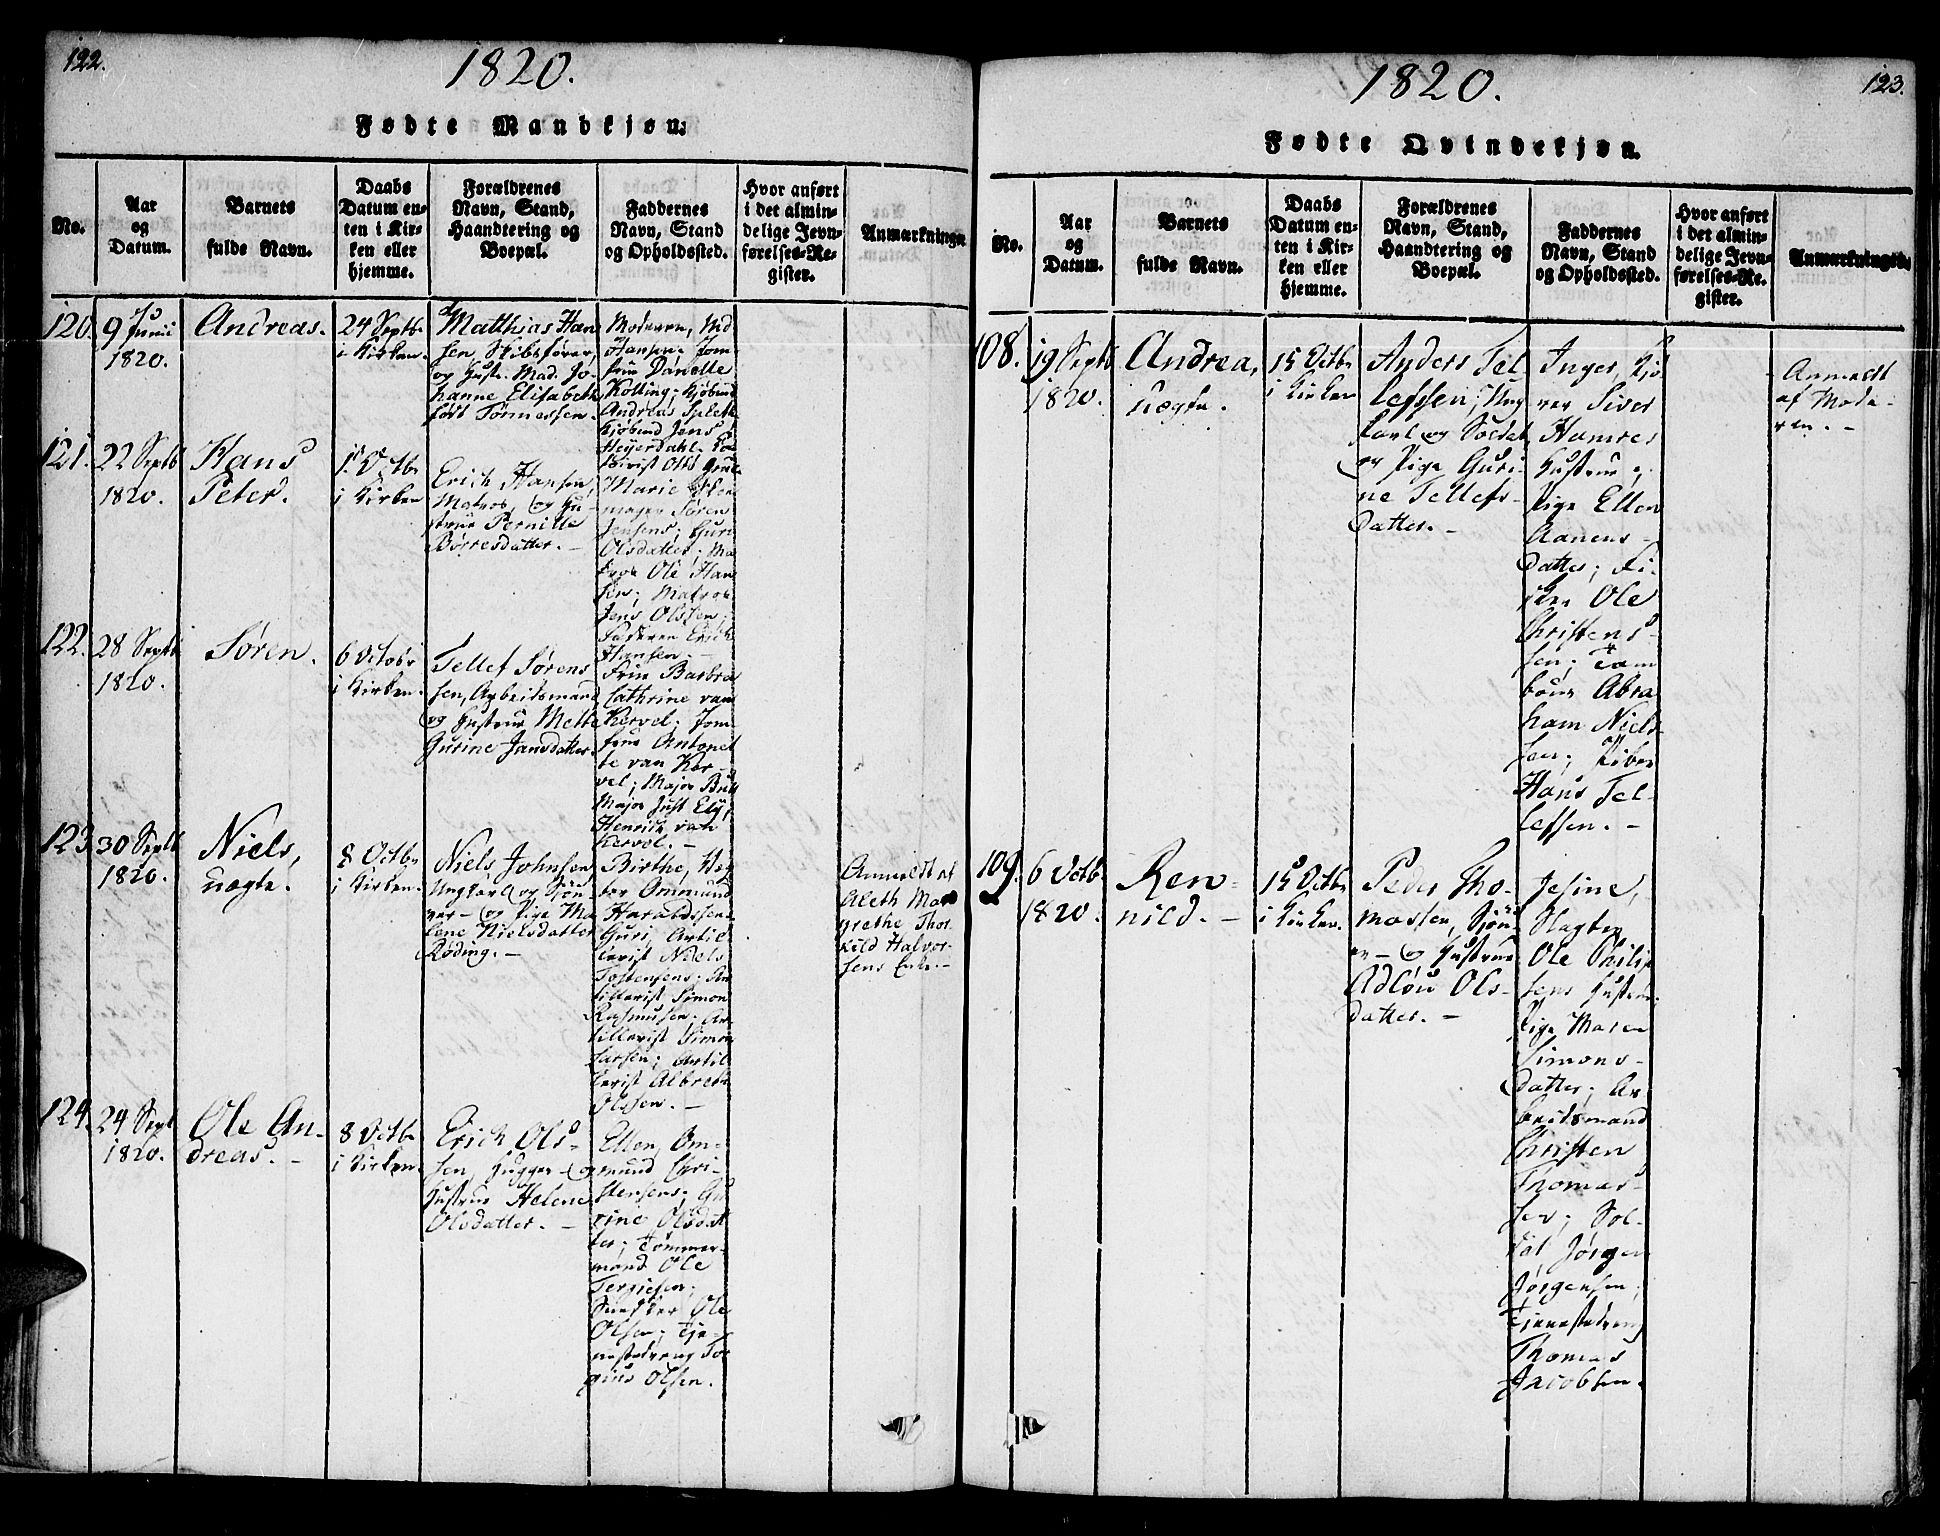 122.
1820.
Fødte Mandkjøn.
No.
Aar
og
Datum.
Barnets
fulde Navn.
Daabs
Datum en-
ten i Kir-
ken eller
hjemme.
Forældrenes
Navn, Stand,
Haandtering og
Boepæl.
Faddernes
Navn, Stand
og Opholdssted.
Hvor anført
i det almin-
delige Jevn-
førelses-Re-
gister.
Anmærkninger
120.
9 Junii
1820.
Andreas.
24 Septbr
i Kirken.
Matthias Han
sen, Skibsfører,
og Hustr. Mad. Jo-
hanne Elisabeth
født Tønnessen.
Moderen, Md
Hansen. Jom-
frue Danelle
Kolling; Kjøbmd
Andreas Spleth
Kjøbmd Jens
Heyerdahl
121.
22 Septb
1820.
Hans
Peter.
1 Octbr
i Kirken
Erich Hansen,
Matros, og Hu-
strue Pernille
Børresdatter. -
Marie
mager Søren
Jensens; Guri
Olsdatter; Ma
tros Ole Han
sen; Matros
Jens Olssen;
Faderen Erich
Hansen. -
122.
28 Septb
1820.
Søren.
6 Octobr
i Kirken.
Tellef Sørens
sen, Arbeidsmand
og Hustrue Mette
Gurine Jansdatter.
Frue Barbra
Cathrine van
Kervel; Jom-
frue Antonet
te van Ker-
vel; Major
Major Just Ely;
Henrich van
Kervel. -
123.
30 Septb
1820.
Niels,
uægte.
8 Octbr
i Kirken.
Niels Johnsen
Ungkarl og Sjøu-
er - og Pige Ma
lene Nielsdatter
Røding. -
Birthe,
Ommund
Haraldssens
Guri, Artil
lerist Niels
Tostensens; Ar
tillerist Simon
Rasmussen. Ar-
tillerist Simon
Larsen; Artil
lerist Albreth
Olssen. -
Anmeldt af
Aleth Mar
grethe Thor
kild Halvor-
sens Enke. -
124.
24 Sept
1820.
Ole An-
dreas. -
8 Octbr
i Kirken.
Erich Ols-
sen, Hugger - og
Hustrue Helene
Olsdatter. -
Ellen, Om-
mund Chri-
stensens; Gu
rine Olsdat
ter; Tømmer-
mand Ole
Tergiesen;
Ole
Olsen; Tje-
nestedreng Tor
Olsen.
123.
1820.
Fødte Qvindekjøn.
No.
Aar
og
Datum.
Barnets
fulde Navn.
Daabs
Datum en-
ten i Kir-
ken eller
hjemme.
Forældrenes
Navn, Stand,
Haandtering og
Boepæl.
Faddernes
Navn, Stand
og Opholdssted.
Hvor anført
i det almin-
delige Jevn-
førelses-Re-
gister.
Anmærkninger.
108.
19 Septb
1820.
Andrea,
uægte.
15 Octbr
i Kirken
Anders Tel-
lefssen; Ung
karl og Soldat
og Pige Guri-
ne Tellefs-
datter. -
Inger,
Siver
Hamres
Hustrue;
Pige Ellen
Aanens-
datter; Fi-
sker Ole
Christens-
sen; Tam
bour Abra
ham Niels-
sen;
Hans Tel-
lefsen. -
Anmeldt
af Mode-
ren. -
109.
6 Octb.
1820.
Ren-
nild. -
15 Octbr
i Kirken.
Peder Tho-
massen, Sjøu-
er - og Hustrue
Adlou Ols-
datter. -
Jesine,
Slagter
Ole Philip
sens Hustrue;
Pige Maren
Simons-
datter; Ar
beidsmand
Christen
Thomas-
sen; Sol-
dat Jørgen
Jørgensen;
Tjenestedreng
Thomas
Jacobsen.